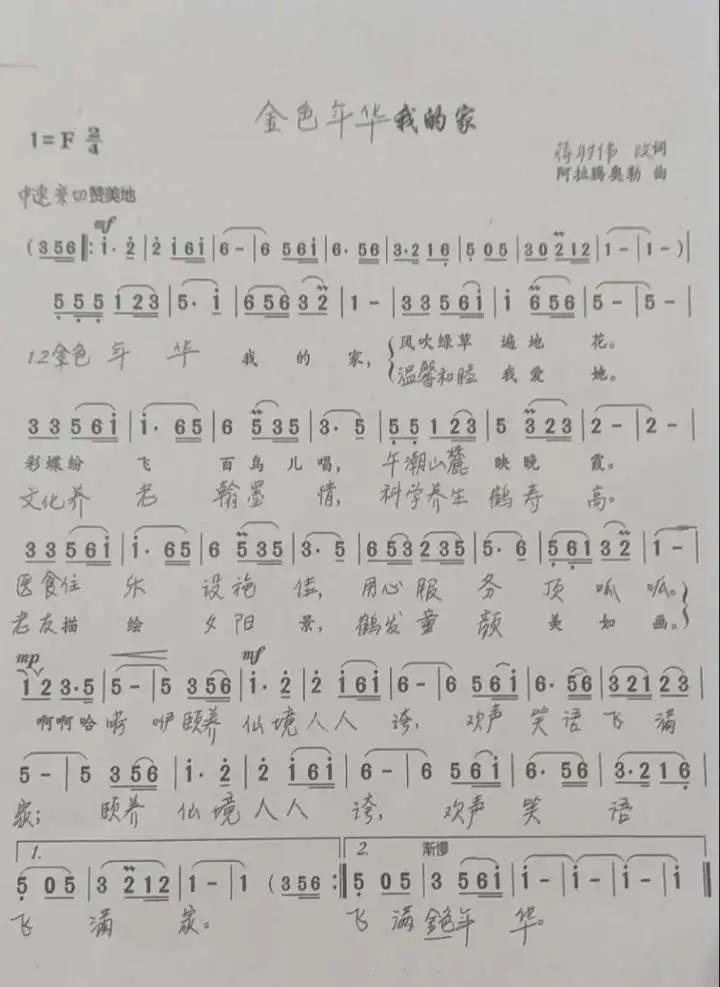 金色年华我的家
1=F 2/4
改词
阿拉腾奥勒 曲
中速亲切赞美地
mf
(3 5 6 ‖: i· 2̇ | 2̇ i 6 i | 6 - | 6 5 6 i | 6· 5 6 | 3· 2 1 6 | 5 0 5 | 3 0 2 1 2 | 1 - | 1 - )|
5 5 5 1 2 3 | 5· i | 6 5 6 3 2 | 1 - | 3 3 5 6 i | i 6 5 6 | 5 - | 5 - |
1.2金色年华 我的家, 风吹绿草 遍地 花。
温馨和睦 我爱 她。
3 3 5 6 i | i· 6 5 | 6 5 3 5 | 3· 5 | 5 5 1 2 3 | 5 3 2 3 | 2 - | 2 - |
彩蝶纷 飞 百鸟儿唱, 午潮山麓 映晚 霞。
文化养 老 翰墨 情, 科学养生 鹤寿 高。
3 3 5 6 i | i· 6 5 | 6 5 3 5 | 3· 5 | 6 5 3 2 3 5 | 5· 6 | 5 6 1 3 2 | 1 - |
医食住 乐 设施 佳, 用心服 务 顶呱 呱。
老友描 绘 夕阳 景, 鹤发童 颜 美如 画。
mp mf
1 2 3· 5 | 5 - | 5 3 5 6 | i· 2̇ | 2̇ i 6 i | 6 - | 6 5 6 i | 6· 5 6 | 3 2 1 2 3 |
啊啊哈嗬 咿颐养 仙境人人 夸, 欢声 笑语飞 满
5 - | 5 3 5 6 | i· 2̇ | 2̇ i 6 i | 6 - | 6 5 6 i | 6· 5 6 | 3· 2 1 6 |
家; 颐养 仙境人人 夸, 欢声 笑 语
1. 2. 渐慢
5 0 5 | 3 2 1 2 | 1 - | 1 (3 5 6 :‖ 5 0 5 | 3 5 6 i | i - | i - | i - | i ‖
飞 满 家。 飞 满金色年 华。